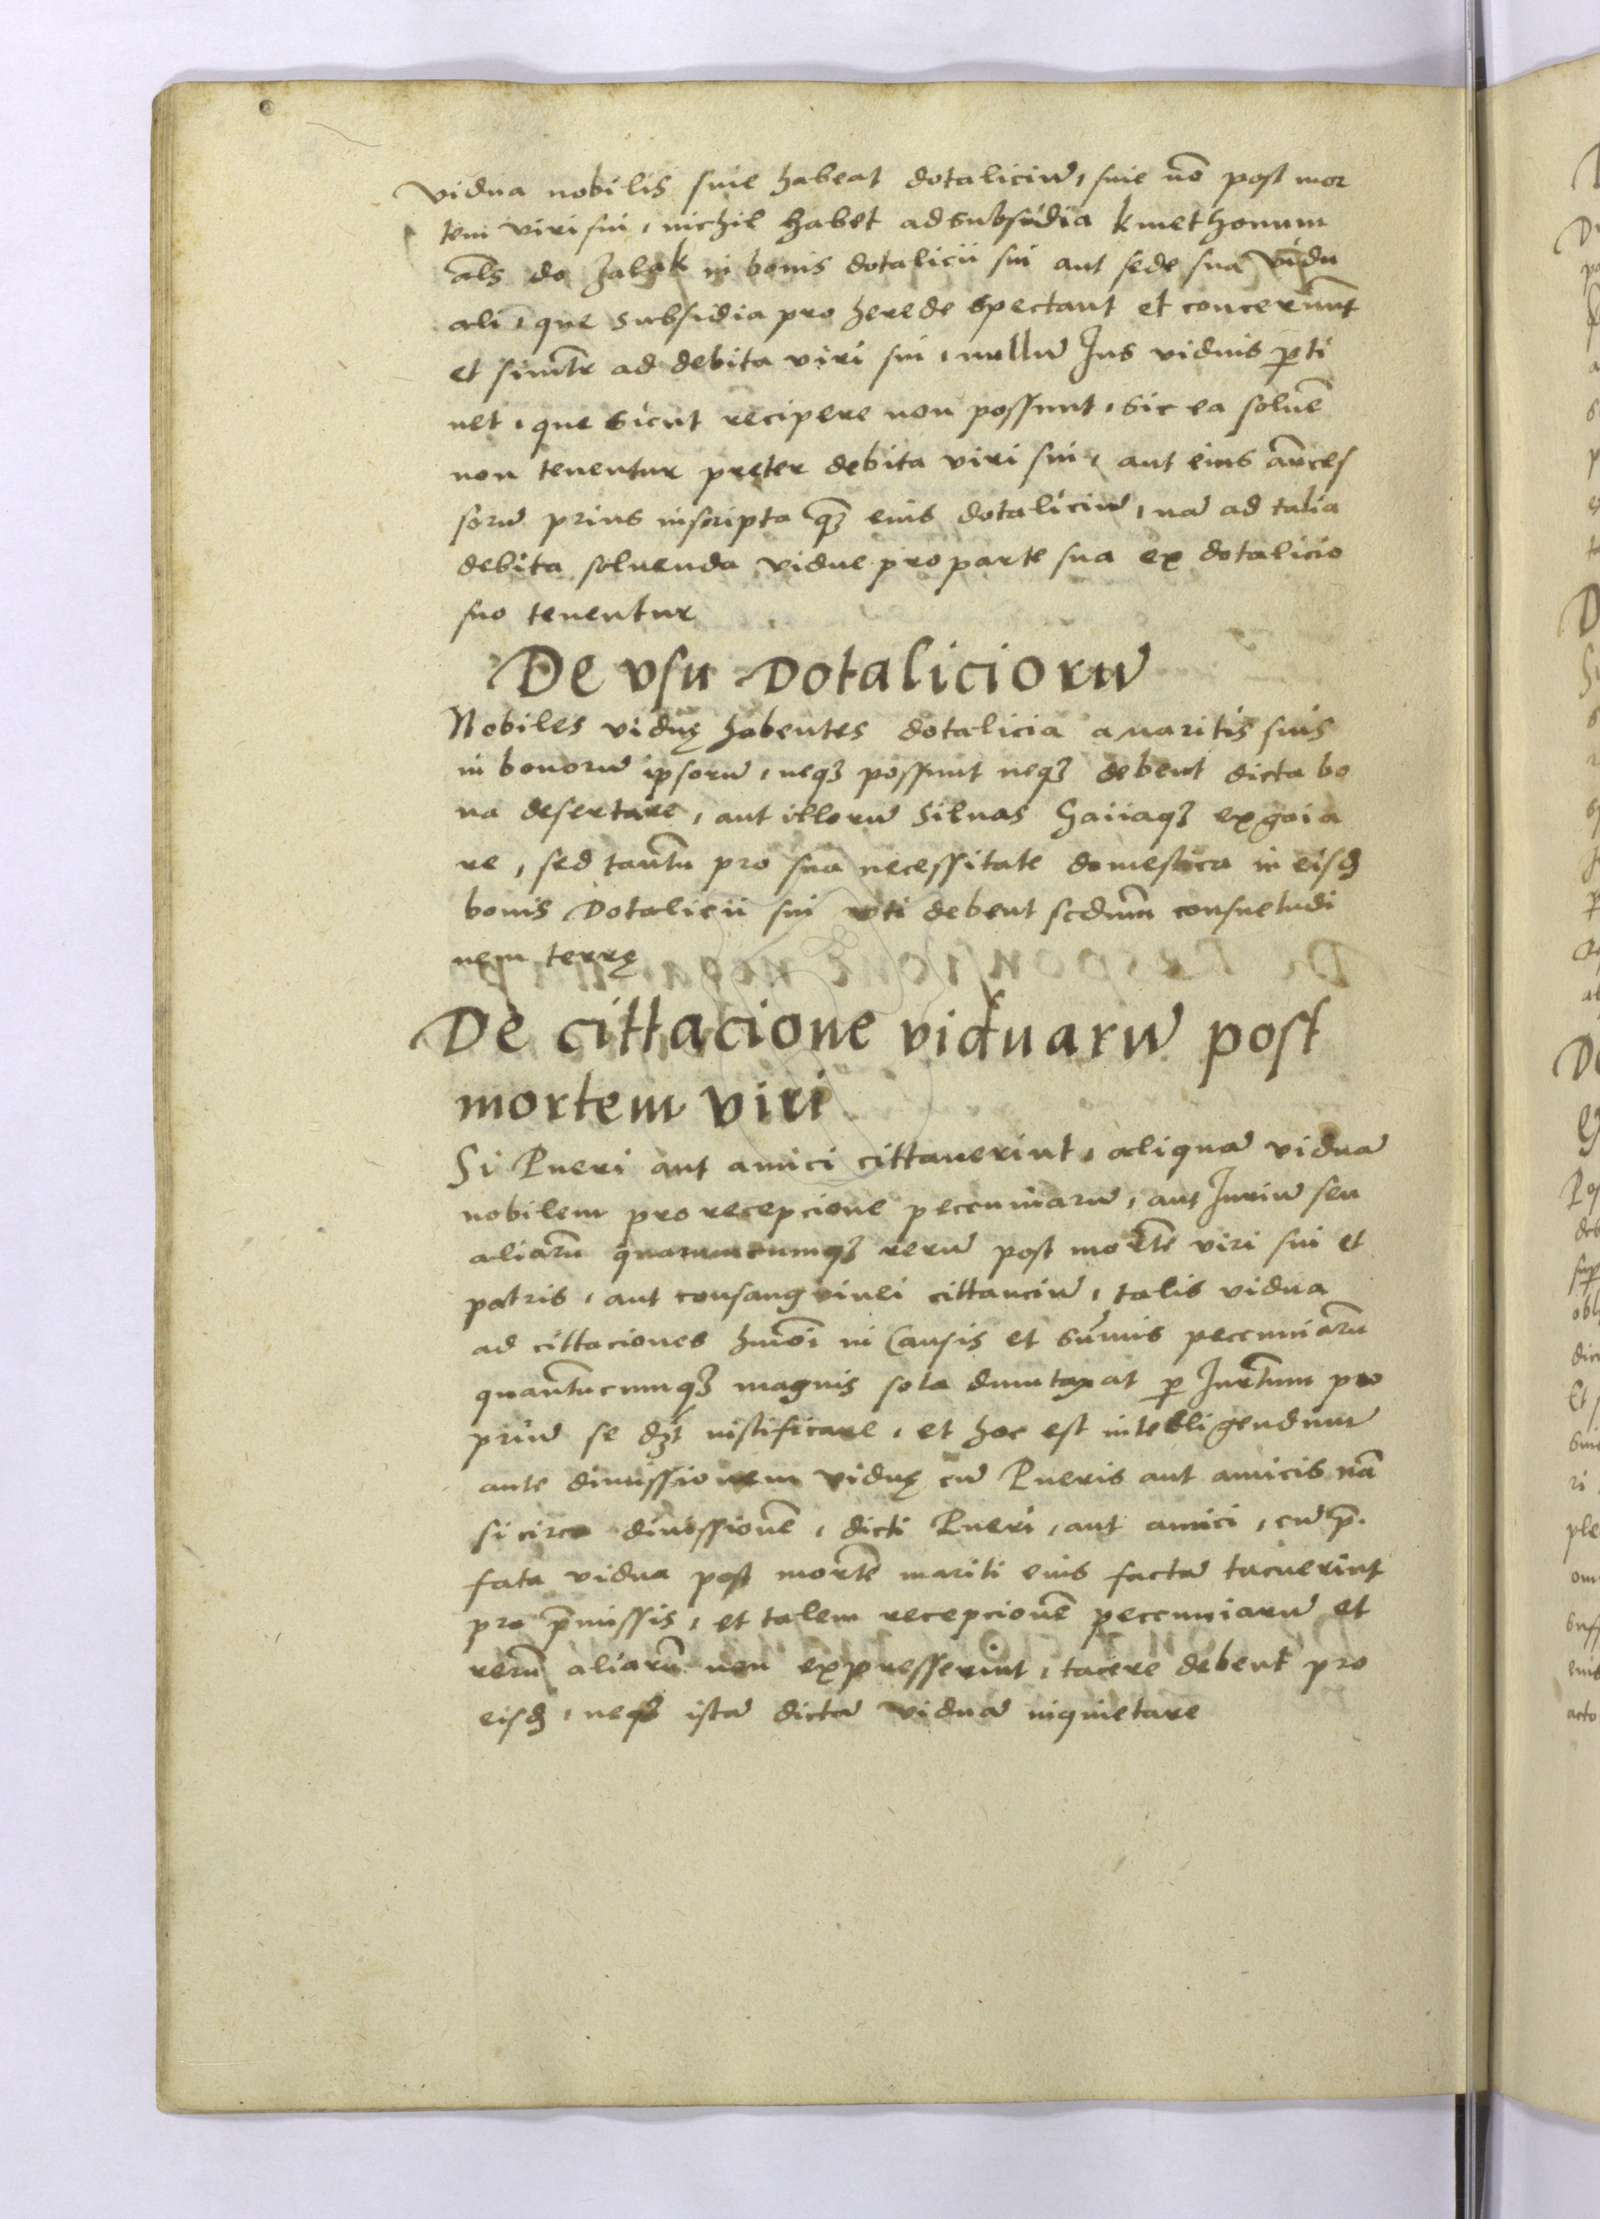 vidua nobilis siue habeat dotaliciũ, siue nõ post mor
tem viri sui, nichil habet ad subsidia kmethonum
als̃ do zalog in bonis dotalicii sui aut sede sua vidu
ali, que subsidia pro herede spectant et concernũt
et simĩtr ad debita viri sui, nullũ Jus viduis ꝑti
net, que sicut recipere non possunt, sic ea soluẽ
non tenentur preter debita viri sui, aut eius ãnces
sorũ prius inscripta qꝫ eius dotaliciũ, nã ad talia
debita soluenda vidue pro parte sua ex dotalicio
suo tenentur
De vsu Dotaliciorũ
Nobiles viduę habentes dotalicia a maritis suis
in bonorũ ipsorũ, neqꝫ possunt neqꝫ debent dicta bo
na desertare, aut illorũ siluas Gaiiaqꝫ exgaia
re, sed tantũ pro sua necessitate domestica in eisdẽ
bonis Dotalicii sui vti debent scdnm̃ consuetudi
nem terrę
De cittacione viduarũ post
mortem viri
Si Pueri aut amici cittauerint, aliquã viduã
nobilem pro recepcione pecuniarũ, aut Jurium seu
aliarũ quarumcumqꝫ rerũ post mortẽ viri sui et
patris, aut consangvinei cittanciũ, talis vidua
ad cittaciones hmõi in Causis et sũmis pecuniarũ
quantũcumqꝫ magnis sola dumtaxat ꝑ Jurtm̃um pro
priũ se dꝫt iustificare, et hoc est intelligendum
ante dimissionem viduę cũ Pueris aut amicis nã
si circa diuissionẽ, dicti Pueri, aut amici, cũ p̃
fata vidua post mortẽ mariti eius factã tacuerint
pro p̃missis, et talem recepcionẽ pecuniarũ et
rerũ aliarũ non expresserint, tacere debent pro
eisdẽ, neqꝫ istã dictã viduã inquietare